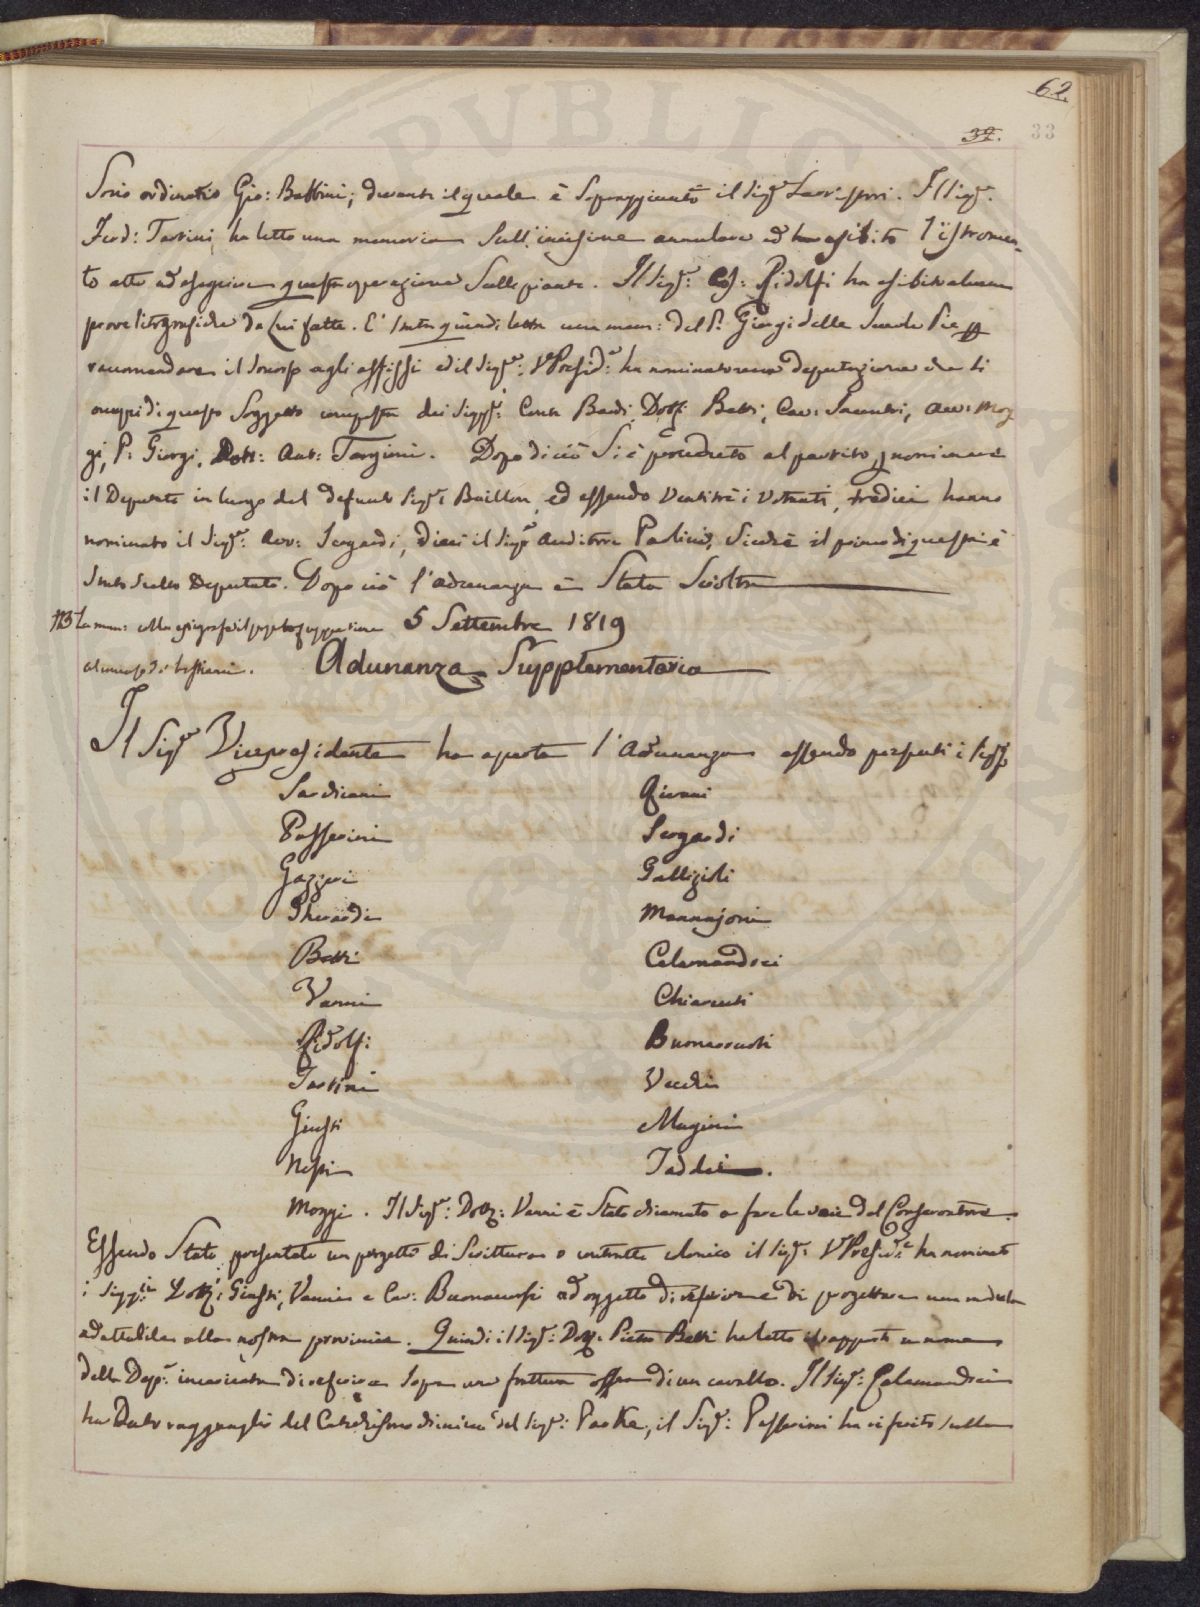 62.
32. 33
Socio ordinario Gio: Battini; durante il quale è sopraggiunto il Sig.r Lawrisperi. Il Sig.r
Ferd: Tartini ha letto una memoria sull'incisione annulare ed ha esibito l'istromen-
to atto ad eseguire questa operazione sulle piante. Il Sig.r: Cos: Ridolfi ha esibito alcune
prove litografiche da Lui fatte. E' stata quindi letta una mem: del P. Giorgi delle Scuole Pie p
raccomandare il soccorso agli affissi ed il Sig.r: V.Presid.e ha nominato una deputazione che si
occupi di questo soggetto composta dei Sigg.ri: Conte Bardi, Dott: Betti, Cav: Sacchetti, Avv: Moz
zi, P: Giorgi, Dott: Ant: Targioni. Dopo di ciò si è proceduto al partito p nominare
il Deputato in luogo del defunto Sig.r Baillou, ed essendo ventitrè i votanti, tredici hanno
nominato il Sig.r: Avv: Sergardi, dieci il Sig.r Auditore Paolini, sicchè il primo di questi è
stato scelto Deputato. Dopo ciò l'adunanza è stata sciolta
NB La mem: colla epigrafe 5 Settembre 1819
al concorso di Adunanza Supplementaria
Il Sig.r Vicepresidente ha aperta l'Adunanza essendo presenti i Sigg.
Sardicani Rivani
Passerini Sergardi
Gazzeri Gallizioli
Gherardi Mannajoni
Betti Calamandrei
Vanni Chiarenti
Ridolfi Buonarroti
Tartini Vecchi
Giusti Magini
Nespi Taddei.
Mozzi. Il Sig.r: Dott: Vanni è stato chiamato a fare le veci del Conservatore.
Essendo stato presentato un progetto di Scrittura o contratto colonico il Sig.r V.Presid.e ha nominato
i Sigg.ri Dott: Giusti, Vanni e Cav: Buonarroti ad oggetto di riferire e di progettare una
adattabile alla nostra provincia. Quindi il Sig.r: Dott: Pietro Betti ha letto il rapporto a nome
della Dep.e incaricata di referire sopra una frattura ossea di un cavallo. Il Sig.r: Calamandrei
ha dato ragguaglio del Catechismo del Sig.r: Paoka, il Sig.r: Passerini ha riferito sulla